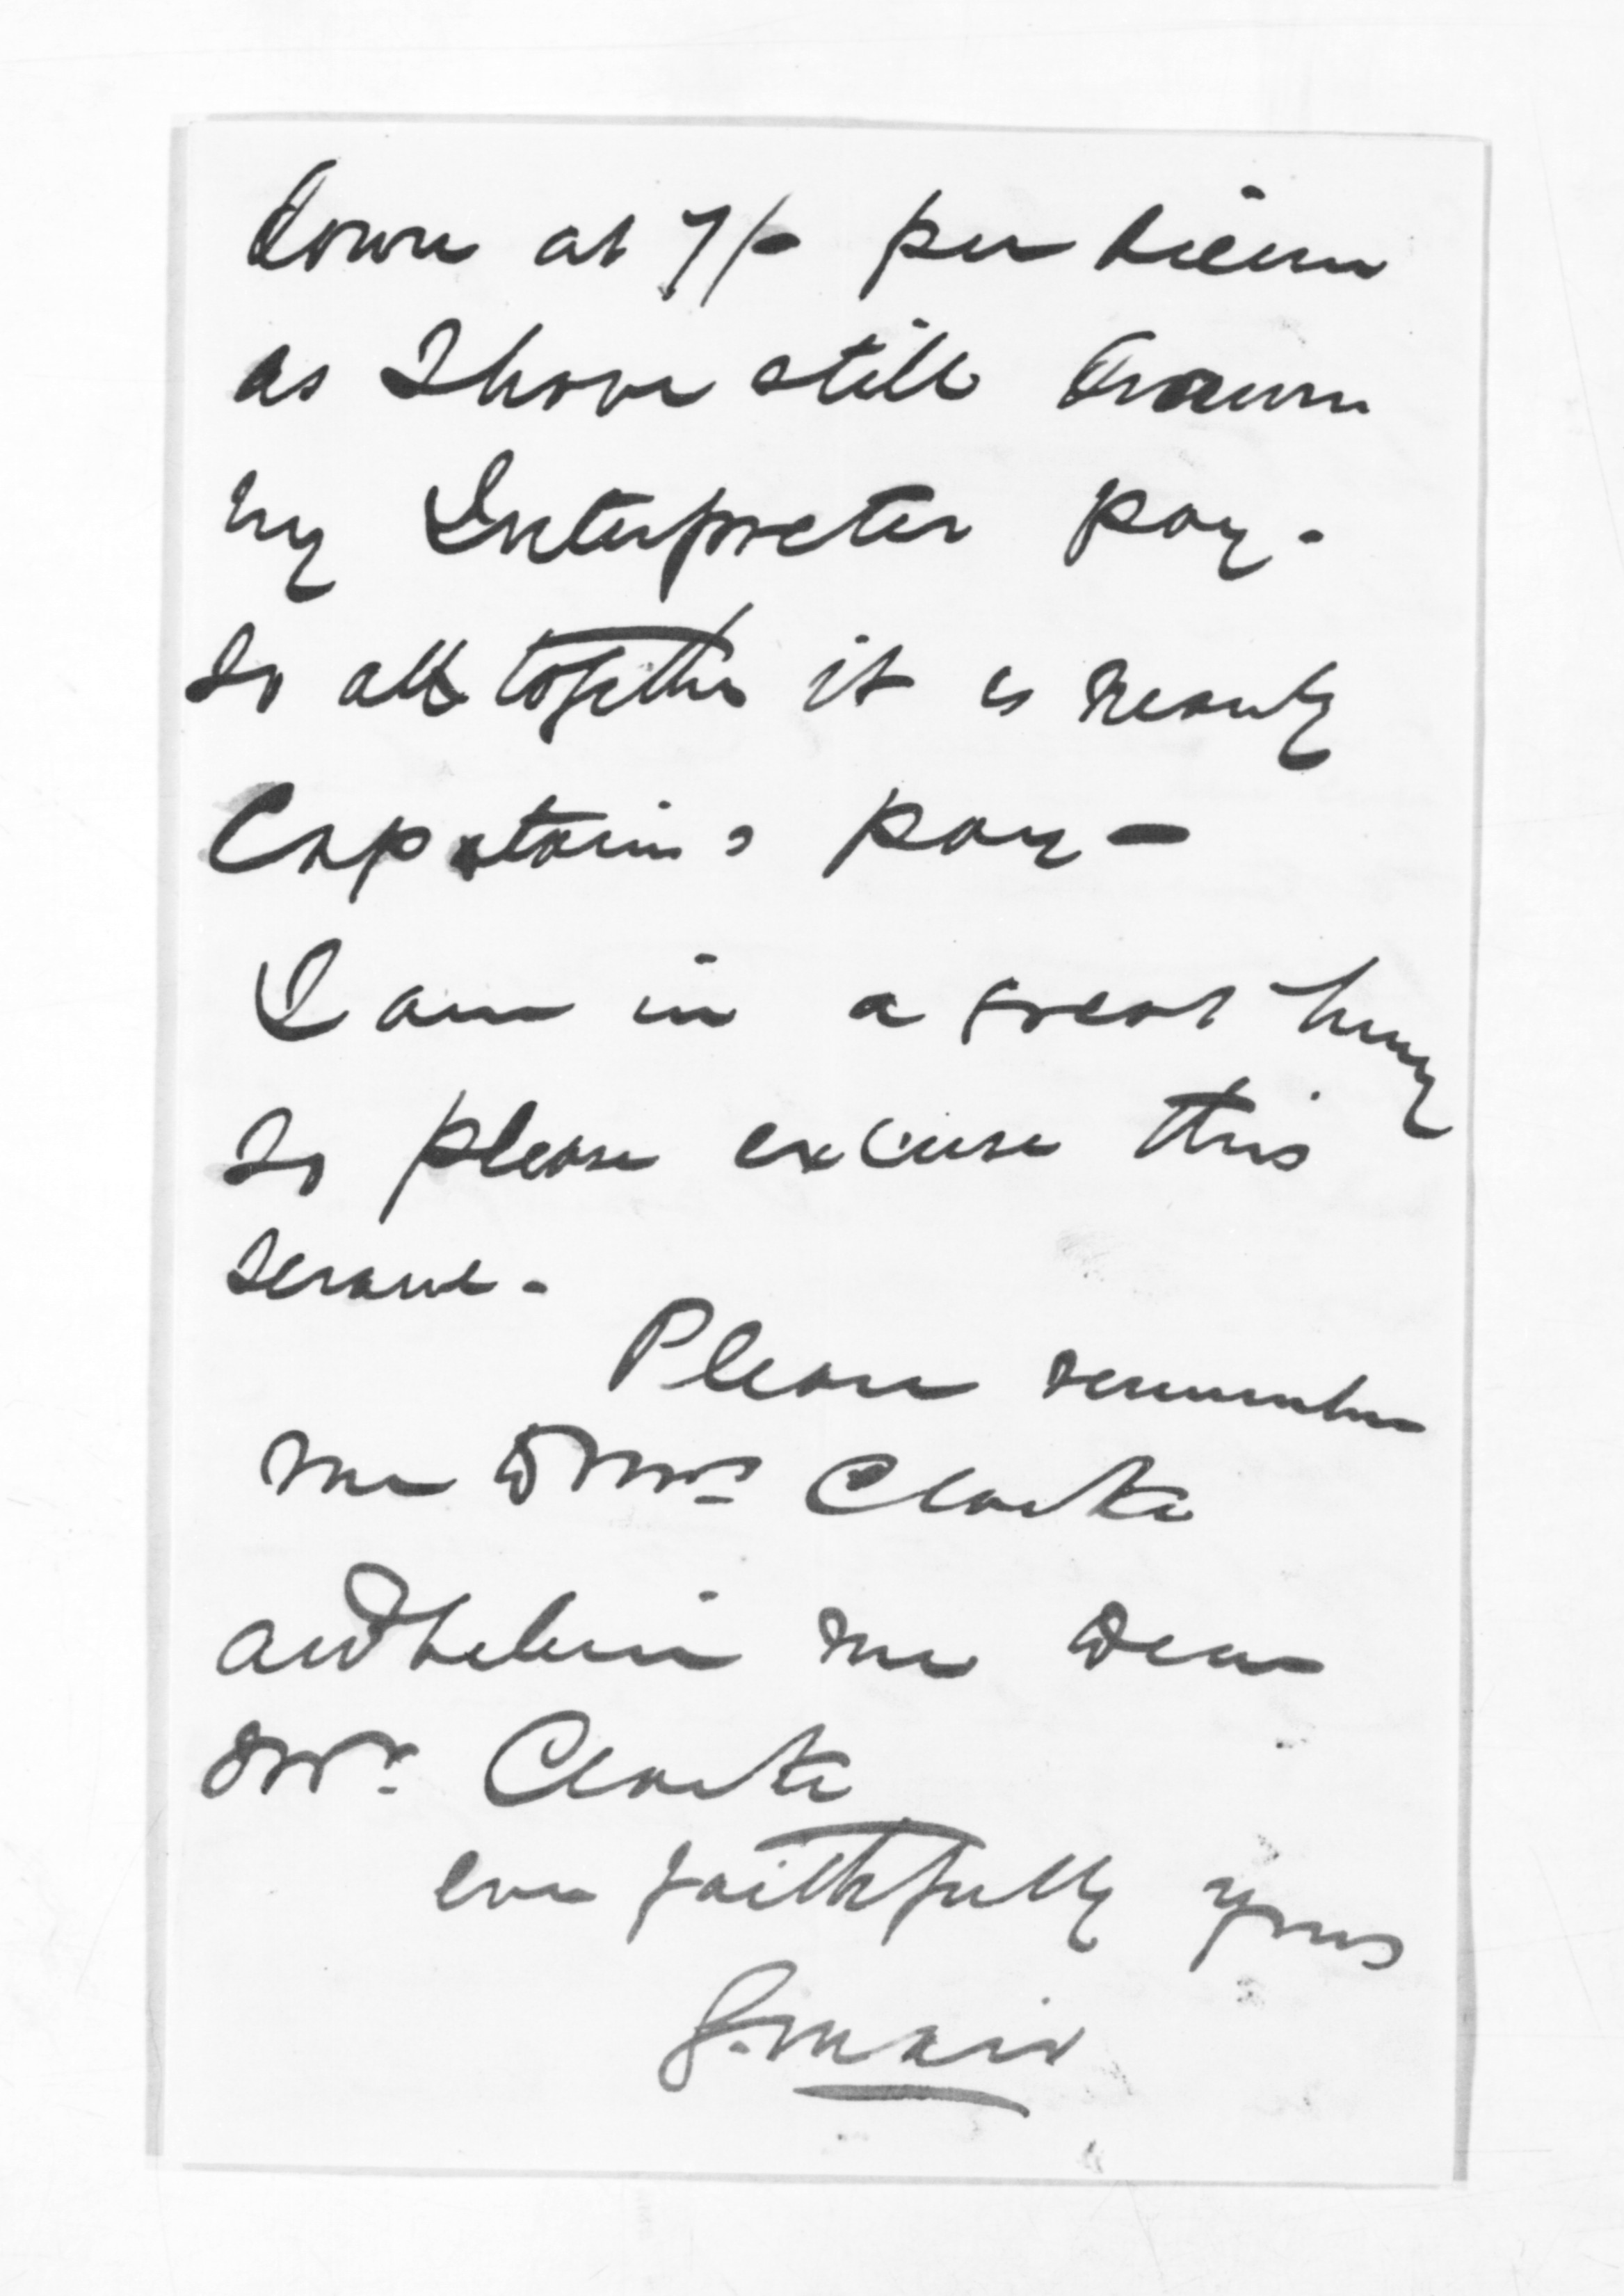 down at 7/- per diem
as I have still drawn
my Interpreter pay.
So all together it is nearly
Captain's pay—
I am in a great hurry
so please excuse this
scrawl.
Please remember
me to Mrs Clarke
and believe me dear
Mr. Clarke
ever faithfully yours
G. Mair